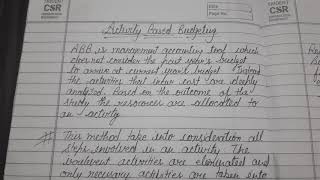 TRIDENT
CSR
Date
Page No.
TRIDENT
CSR
Activity Based Budgeting
ABB is management accounting tool which
does not consider the past year's budget
to arrive at current year's budget. Instead
the activities that incur cost are deeply
analysed. Based on the outcome of the
study the resources are allocated to
an activity.
# This method take into consideration all
steps involved in an activity. The
irrelevant activities are eliminated and
only necessary activities are taken into